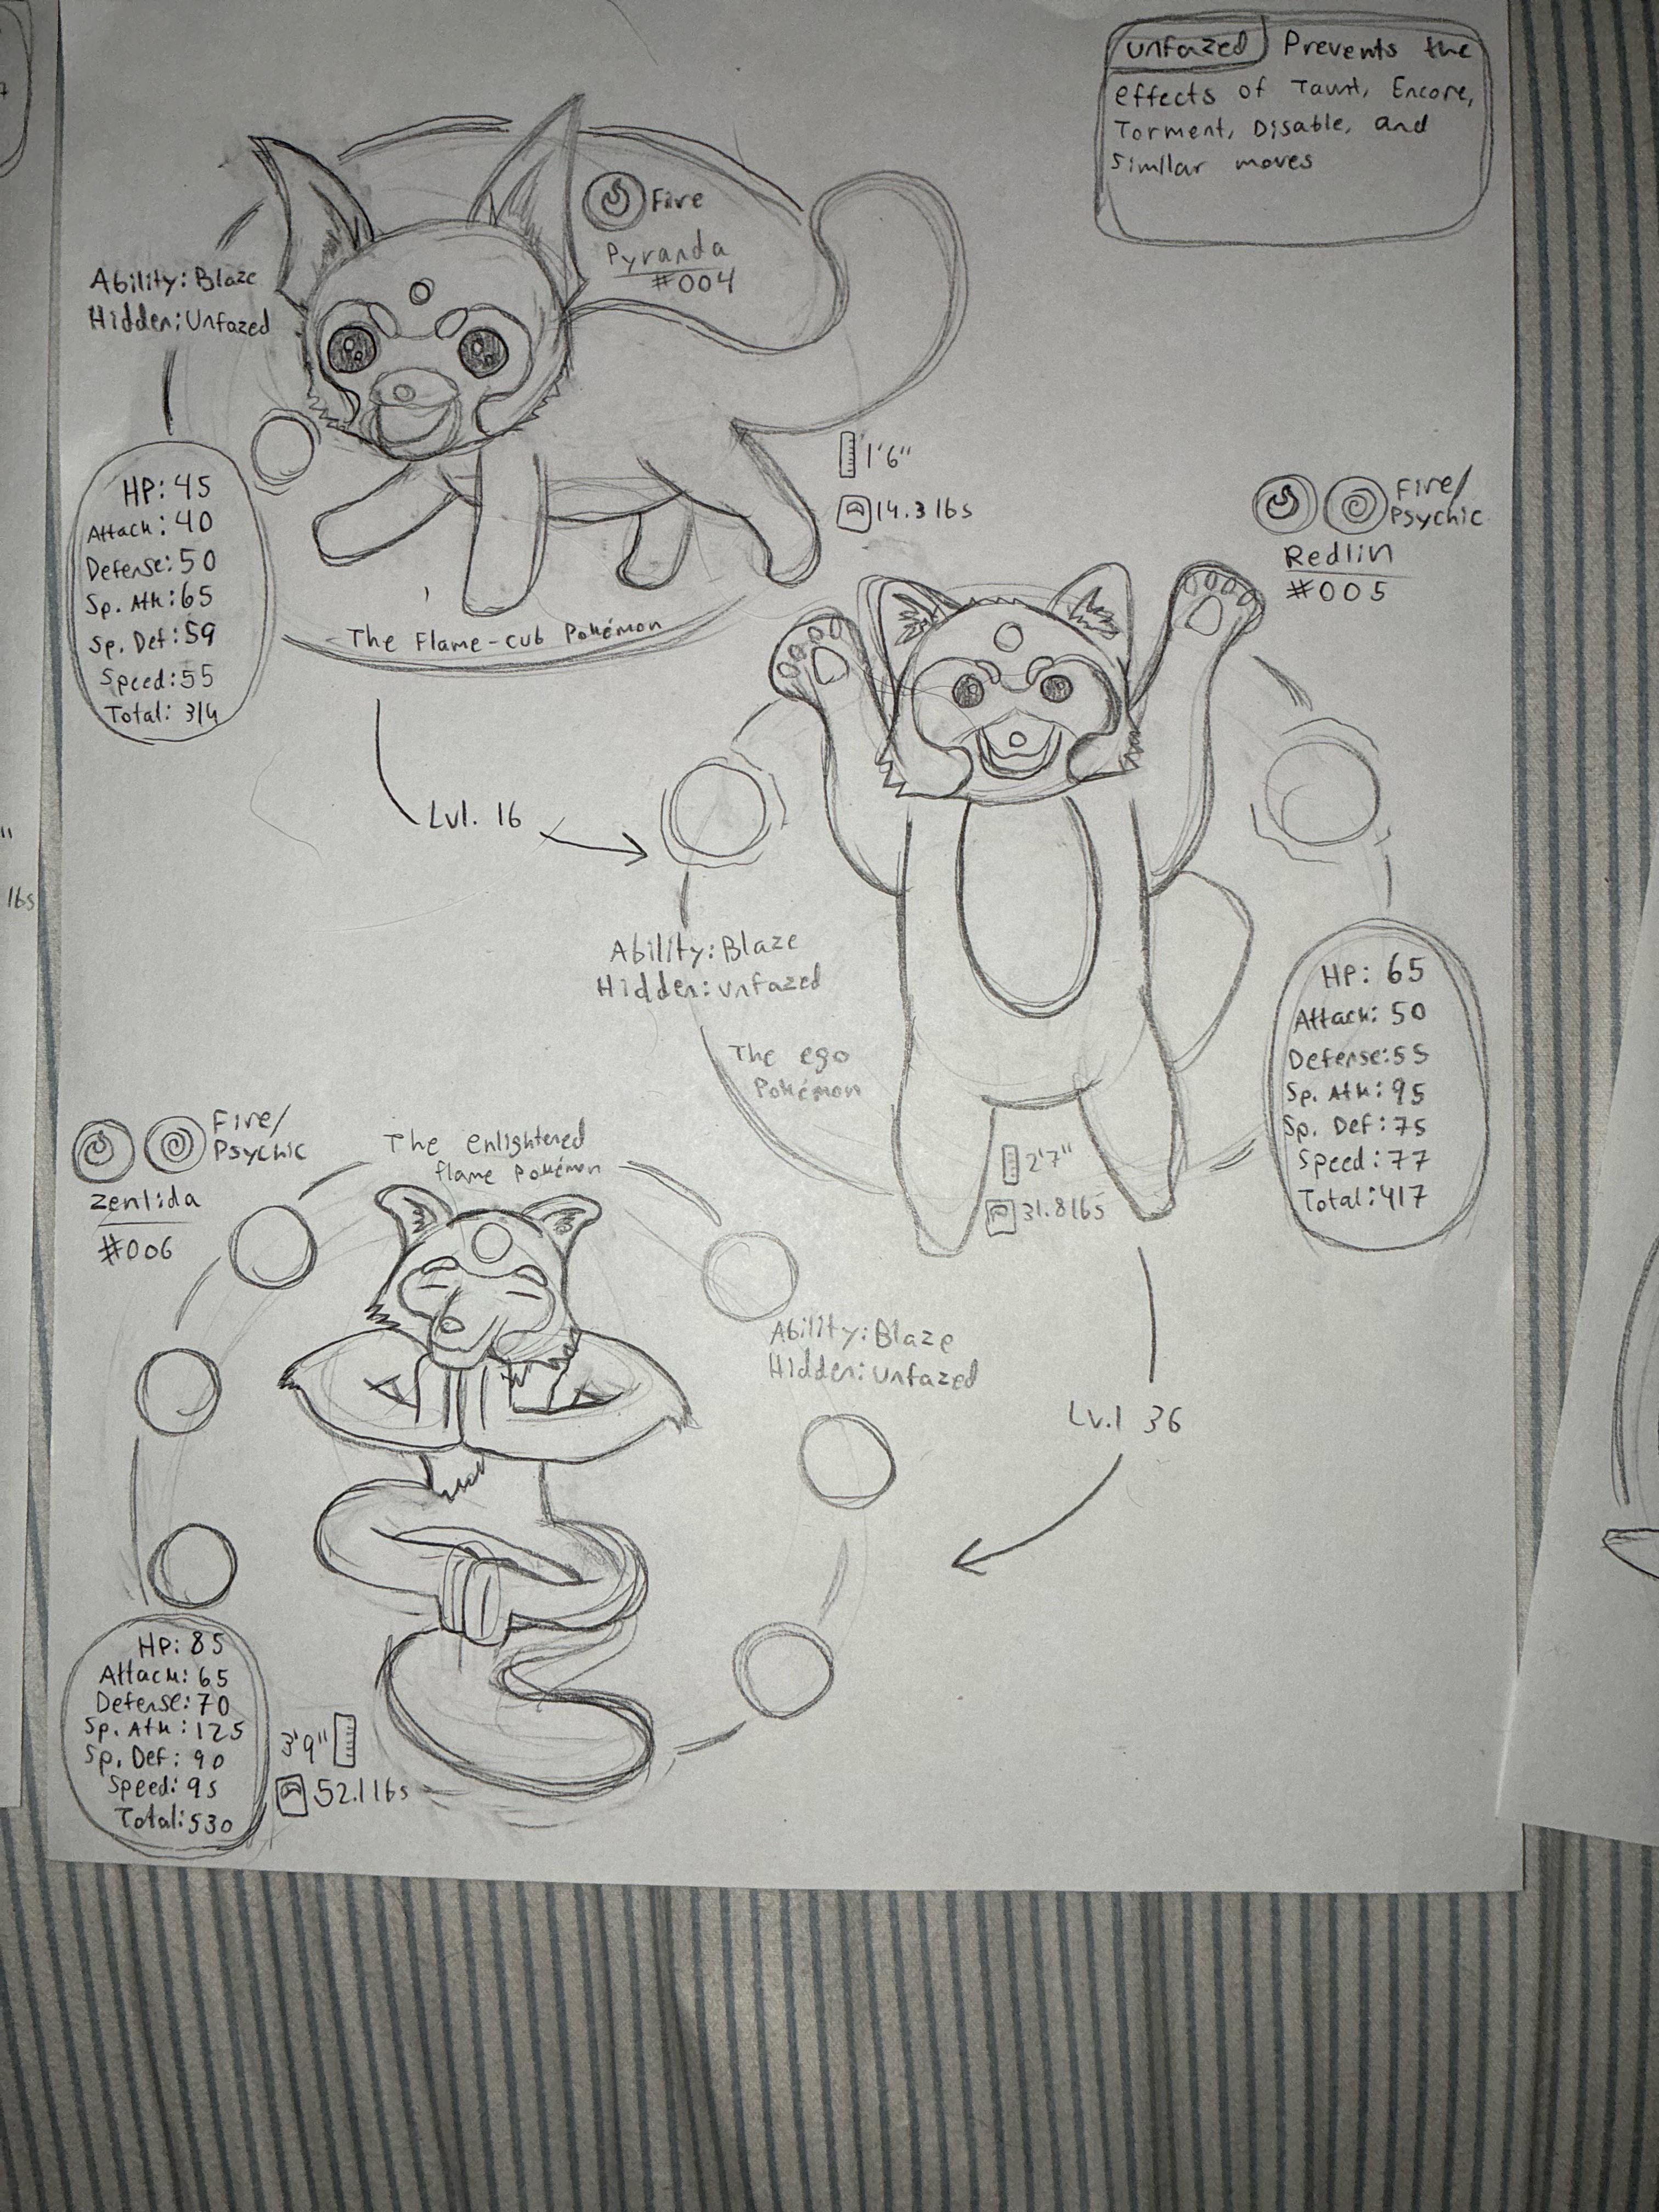 unfazed Prevents the
effects of Taunt, Encore,
Torment, Disable, and
Similar moves
Fire
Pyranda
#004
Ability: Blaze
Hidden: Unfazed
HP: 45
Attack: 40
Defense: 50
Sp. Atk: 65
Sp. Def: 59
Speed: 55
Total: 314
1'6"
14.3 lbs
The Flame-cub Pokémon
Lvl. 16
Fire/
Psychic
Redlin
#005
Ability: Blaze
Hidden: unfazed
The ego
Pokémon
HP: 65
Attack: 50
Defense: 55
Sp. Atk: 95
Sp. Def: 75
Speed: 77
Total: 417
2'7"
31.8 lbs
Lv.l 36
Fire/
Psychic
Zenlida
#006
The enlightered
flame Pokémon
Ability: Blaze
Hidden: unfazed
HP: 85
Attack: 65
Defense: 70
Sp. Atk: 125
Sp. Def: 90
Speed: 95
Total: 530
3'9"
52.1 lbs
lbs